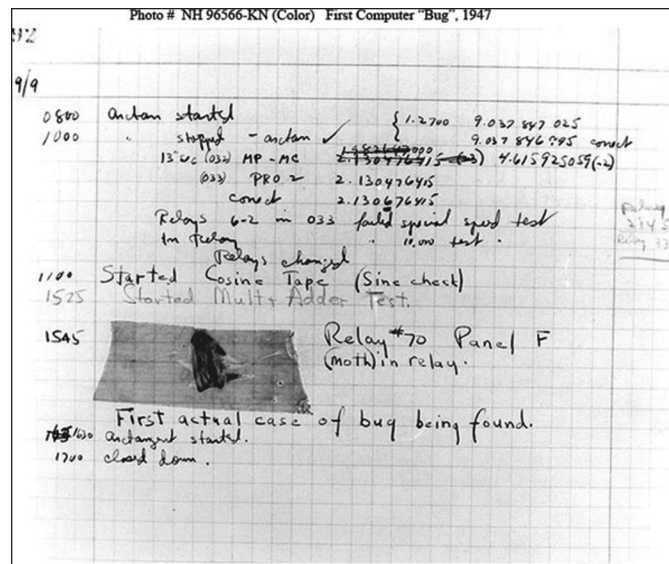 Photo # NH 96566-KN (Color) First Computer "Bug", 1947
92
9/9
0800 arctan started
1000 " stopped - arctan ✓
{ 1.2700 9.037 847 025
9.037 846 995 correct
13"uc (032) MP - MC 2.130476415 4.615925059(-2)
(033) PRO 2 2.130476415
correct 2.130676415
Relays 6-2 in 033 failed special speed test
In Relay " 10,000 test .
Relays changed
1100 Started Cosine Tape (Sine check)
1525 Started Mult + Adder Test.
1545 Relay #70 Panel F
(moth) in relay.
First actual case of bug being found.
1630 arctangent started.
1700 closed down.
Relay
2145
Relay 33